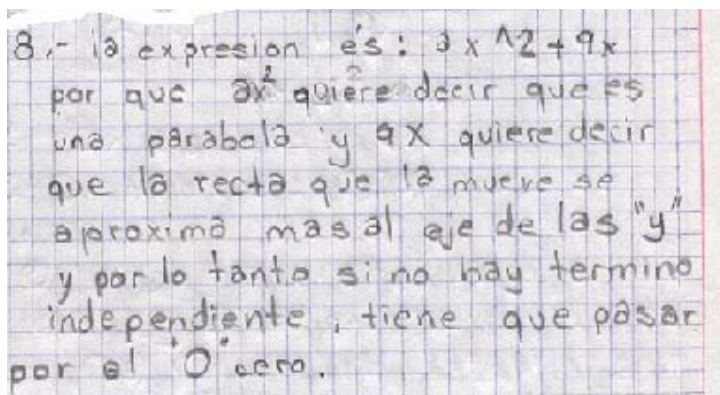 8.- la expresion es: ax^2+9x
por que ax² quiere decir que es
una parabola y 9x quiere decir
que la recta que la mueve se
aproxima mas al eje de las "y"
y por lo tanto si no hay termino
independiente, tiene que pasar
por el "0" cero.